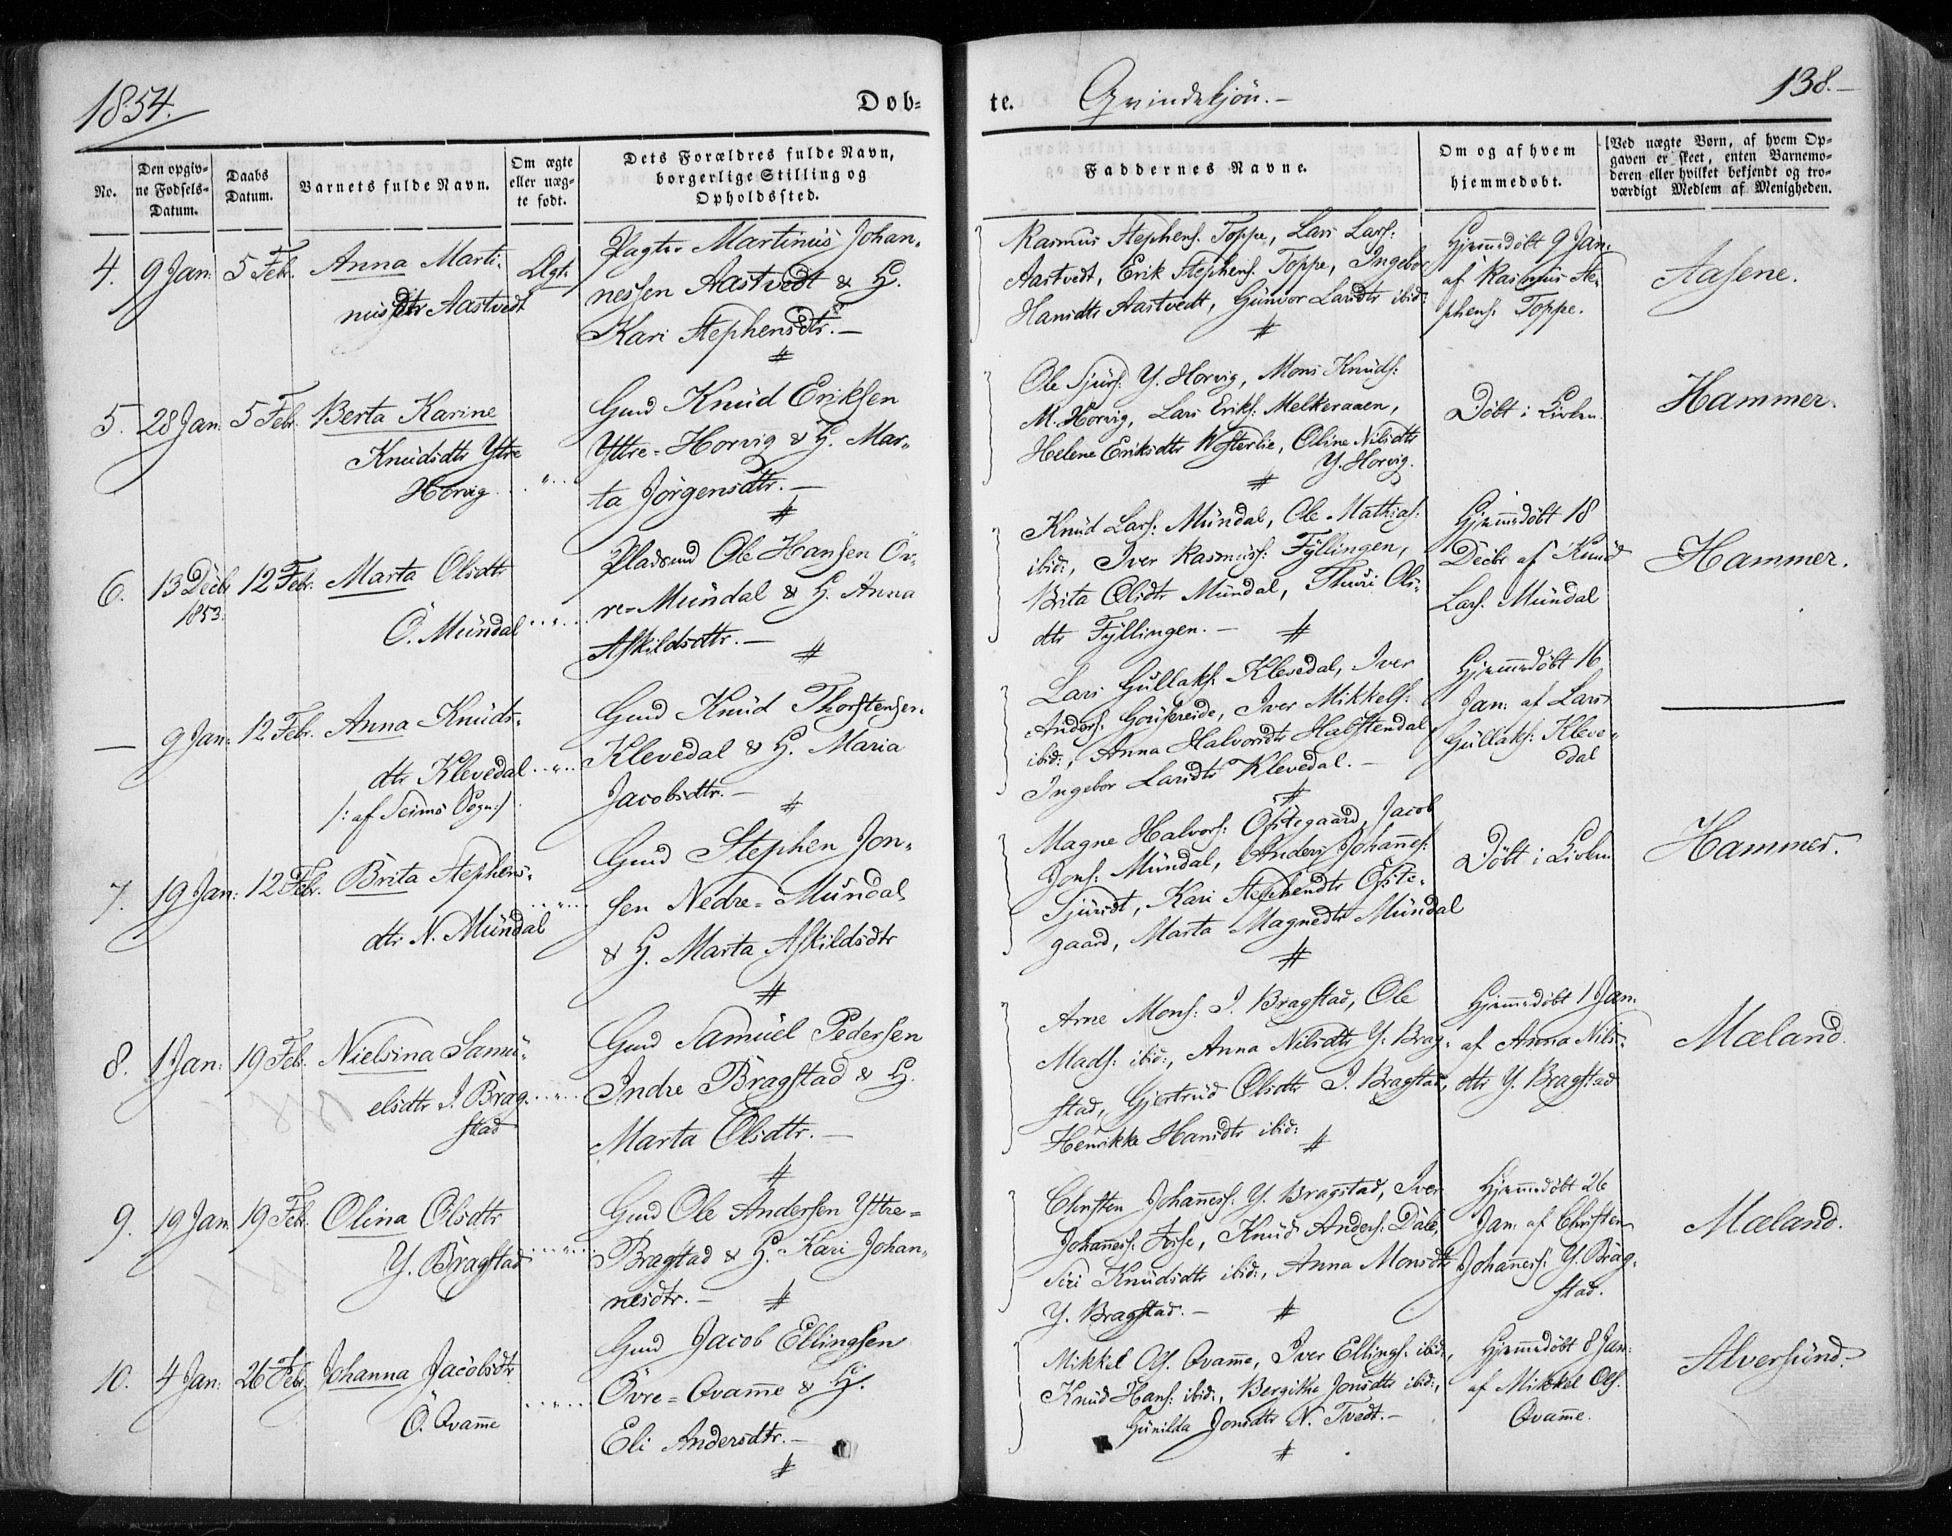 1854.
Døb-
te.
Qvindekjön.-
138.-
No.
Den opgiv-
ne Fødsels-
Datum.
Daabs
Datum.
Barnets fulde Navn.
Om ægte
eller uæg-
te født.
Dets Forældres fulde Navn,
borgerlige Stilling og
Opholdssted.
Faddernes Navne.
Om og af hvem
hjemmedøbt.
[Ved uægte Børn, af hvem Op-
gaven er skeet, enten Barnemo-
deren eller hvilket bekjendt og tro-
værdigt Medlem af Menigheden.
4. 9 Jan: 5 Febr. Anna Marti-
nusdtr Aastvedt
Ægt:
Pagter Martinus Johan-
nessen Aastvedt & H.
Kari Stephensdtr.-
Rasmus Stephens. Toppe, Lars Lars:
Aastvedt, Erik Stephens. Toppe, Ingebor
Hansdtr Aastvedt, Gunvor Larsdtr ibid:
Hjemmedöbt 9 Jan:
af Rasmus Ste-
phens. Toppe.
Aasene.
5. 28 Jan. 5 Febr. Berta Karine
Knudsdtr Ytre
Horvig
Gmd Knud Eriksen
Yttre-Horvig & H. Mar-
ta Jörgensdtr.-
Ole Sjurs: Y. Horvig, Mons Knuds:
M. Horvig, Lars Eriks: Melkeraaen,
Helene Eriksdtr Westerlie, Oline Nilsdtr
Y. Horvig.
Döbt i Kirken.
Hammer.
6. 13 Decbr 12 Febr. Marta Olsdtr
1853.
Ö. Mundal
Pladsmd Ole Hansen Öv-
re-Mundal & H. Anna
Askildsdtr.-
Knud Lars: Mundal, Ole Mathias:
ibid:, Iver Rasmuss: Fyllingen,
Brita Olsdtr Mundal, Thuri Ols-
dtr Fyllingen.-
Hjemmedöbt 18
Decbr af Knud
Lars. Mundal
Hammer.
- 9 Jan: 12 Febr. Anna Knuds-
dtr Klevedal
/: af Seims Sogn:/
Gmd Knud Thorstensen
Klevedal & H. Maria
Jacobsdtr.-
Lars Gullaks: Klevedal, Iver
Anders: , Iver Mikkels:
ibid:, Anna Halvorsdtr Halstendal
Ingebor Larsdtr Klevedal.-
Hjemmedöbt 16
Jan: af Lars
Gullaks: Kleve-
dal
7. 19 Jan: 12 Febr. Brita Stephens-
dtr N. Mundal
Gmd Stephen Jon-
sen Nedre-Mundal
& H. Marta Askildsdtr
Magne Halvors: Östegaard, Jacob
Jons: Mundal, Anders Johannes:
, Kari Stephendtr Öste-
gaard, Marta Magnedtr Mundal
Döbt i Kirken
Hammer.
8. 1 Jan: 19 Febr. Nielsina Samu-
elsdtr I. Brag-
stad
Gmd Samuel Pedersen
Indre Bragstad & H.
Marta Olsdtr.-
Arne Mons: I. Bragstad, Ole
Mads: ibid:, Anna Nilsdtr Y. Brag-
stad, Gjertrud Olsdtr I. Bragstad,
Henrikke Hansdtr ibid:
Hjemmedöbt 1 Jan.
af Anna Nils-
dtr Y. Bragstad
Mæland.
9. 19 Jan. 19 Febr. Olina Olsdtr
Y. Bragstad
Gmd Ole Andersen Yttre-
Bragstad & H. Kari Johan-
nesdtr.-
Christen Johanness: Y. Bragstad, Iver
Johanness: , Knud Anders: Dale,
Siri Knudsdtr ibid:, Anna Monsdtr
Y. Bragstad.-
Hjemmedöbt 26
Jan: af Christen
Johanness: Y. Brag-
stad.
Mæland.
10. 4 Jan: 26 Febr. Johanna Jacobsdtr
Ö. Qvamme
Gmd Jacob Ellingsen
Övre-Qvamme & H.
Eli Andersdtr.-
Mikkel Ols. Qvamme, Iver Ellings: ibid:,
Knud Hans: ibid:, Bergithe Jonsdtr ibid:,
Gunilda Jonsdtr N. Tvedt.-
Hjemmedöbt 8 Jan:
af Mikkel Ols.
Qvamme.
Alversund.-